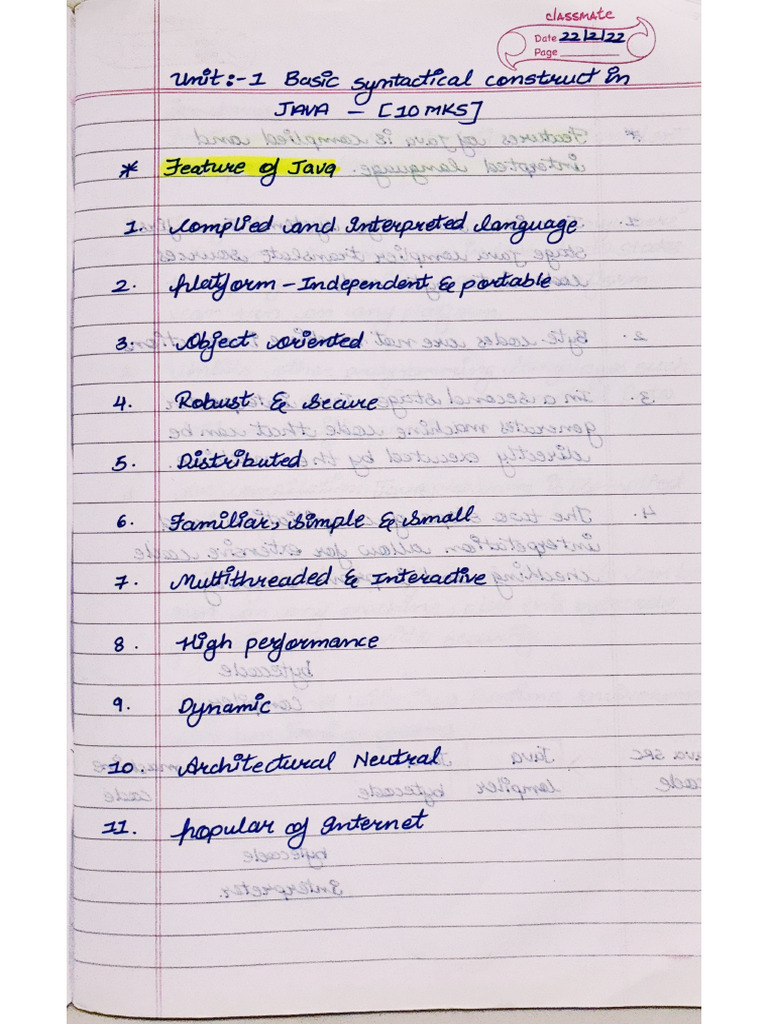 classmate
Date 22/2/22
Page
Unit:-1 Basic syntactical construct in
JAVA - [10 MKS]
* Feature of Java
1. Complied and Interpreted language
2. Platform - Independent & portable
3. Object oriented
4. Robust & secure
5. Distributed
6. Familiar, simple & small
7. Multithreaded & Interactive
8. High performance
9. Dynamic
10. Architectural Neutral
11. Popular of Internet